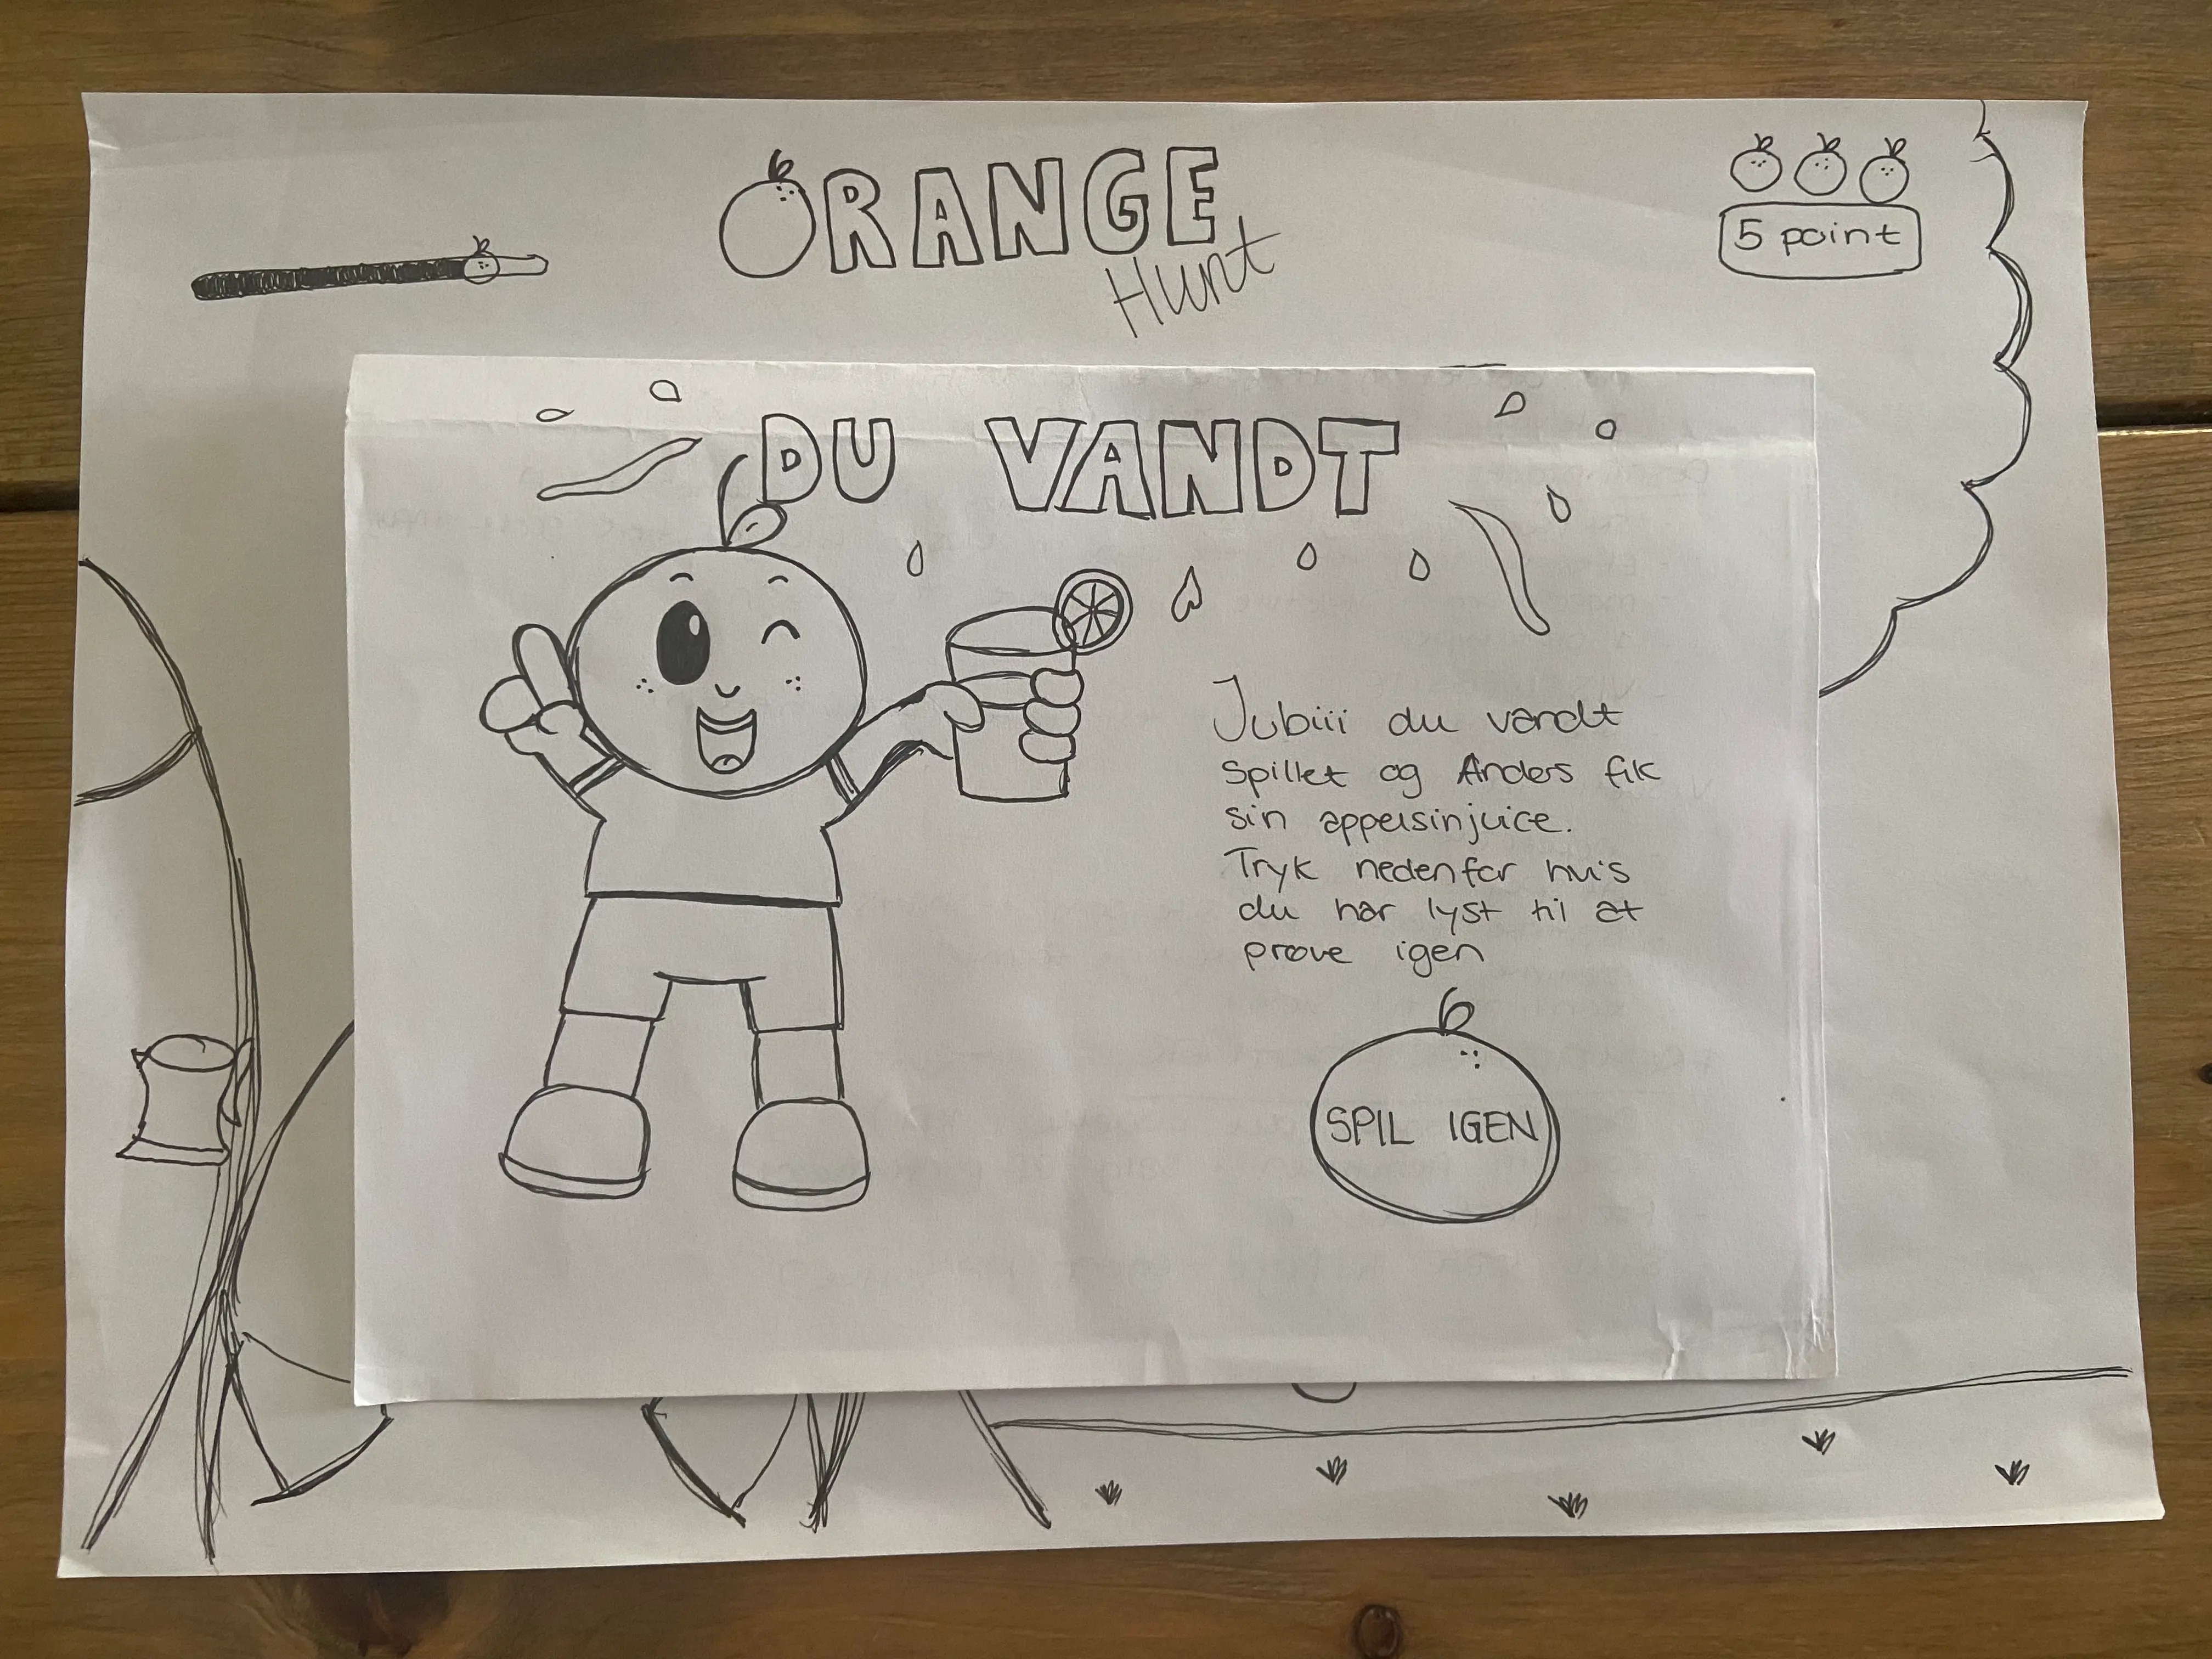 ORANGE
Hunt
5 point
DU VANDT
Jubiii du vandt
spillet og Anders fik
sin appelsinjuice.
Tryk nedenfor hvis
du har lyst til at
prøve igen
SPIL IGEN